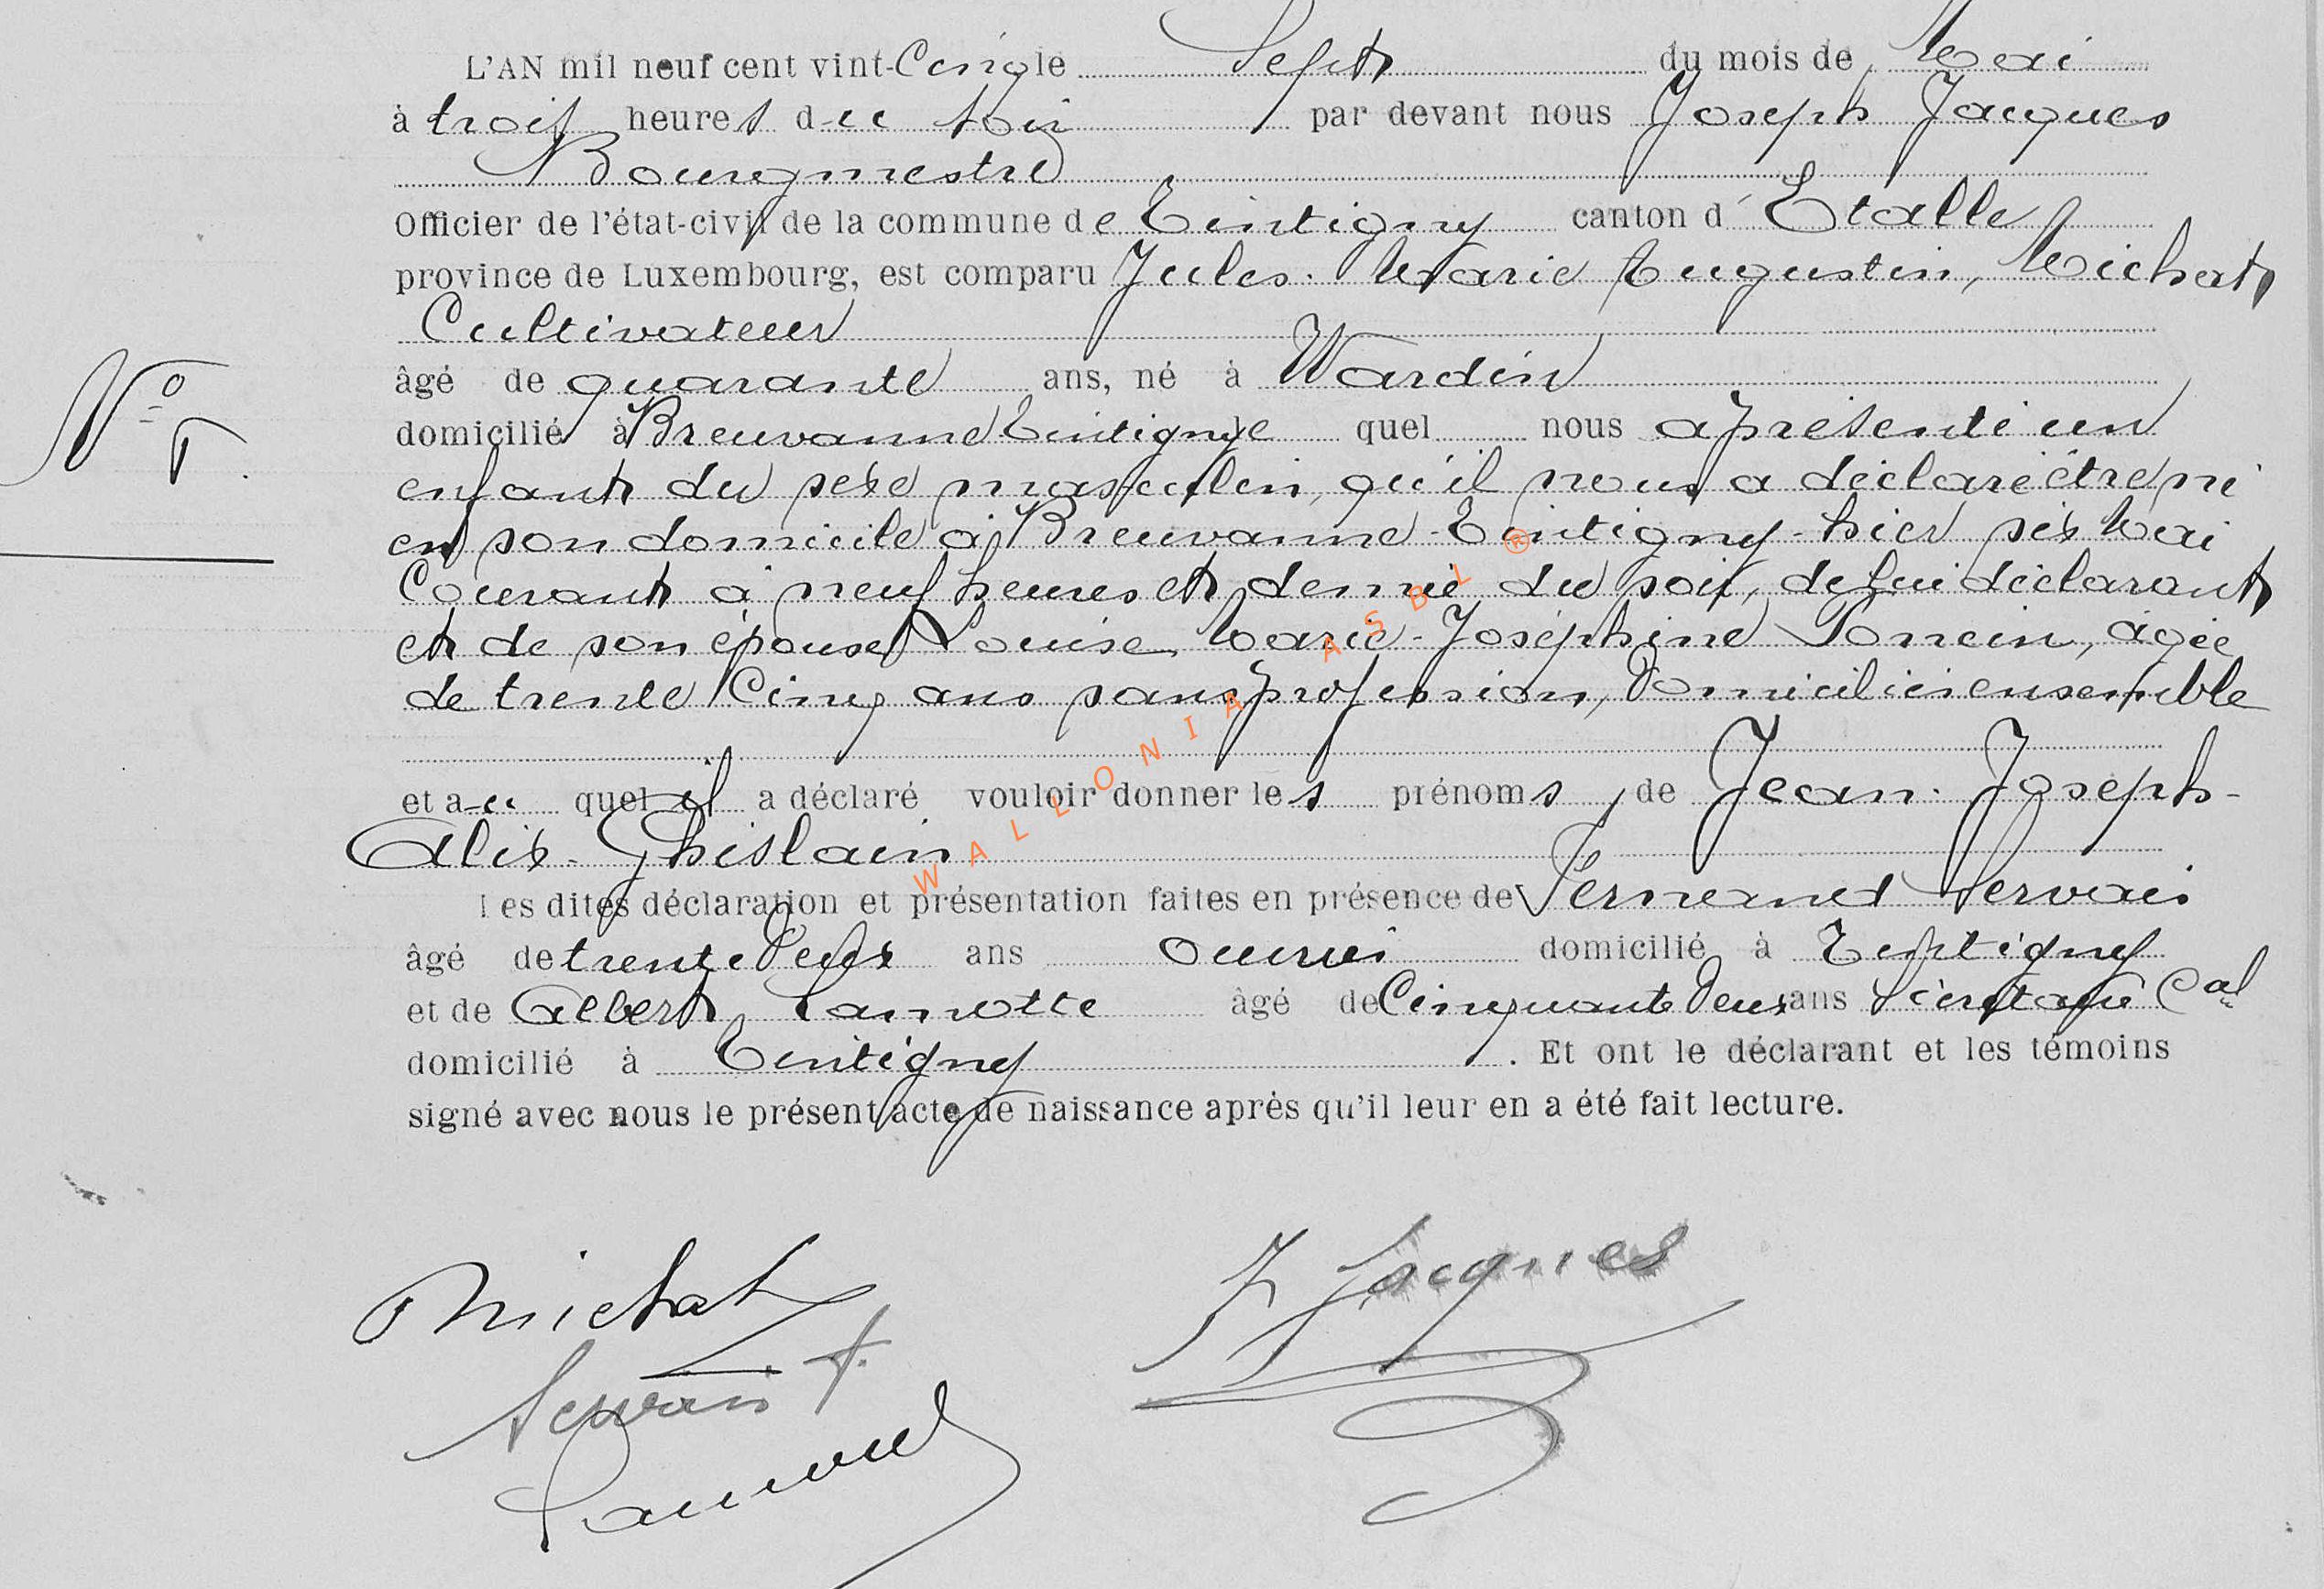 L'AN mil neuf cent vint-Cinq le Sept du mois de Mai
à trois heures du soir par devant nous Joseph Jacques
Bourgmestre
Officier de l'état-civil de la commune de Tintigny canton d'Etalle
province de Luxembourg, est comparu Jules-Marie Augustin, Michat
Cultivateur
âgé de quarante ans, né à Wardin
domicilié à Breuvanne Tintigny le quel nous a présenté un
enfant du sexe masculin, qu'il nous a déclaré être né
en son domicile à Breuvanne-Tintigny-hier six Mai
Courant à neuf heures et demie du soir, de lui déclarant
et de son épouse Louise, Marie-Joséphine Poncin, âgée
de trente Cinq ans sans profession, Domiciliés ensemble
et au quel il a déclaré vouloir donner les prénoms de Jean-Joseph-
Alix-Ghislain
Les dites déclaration et présentation faites en présence de Fernand Servais
âgé de trente Deux ans ouvrier domicilié à Tintigny
et de Albert Lamotte âgé de Cinquante Deux ans Secrétaire Cal
domicilié à Tintigny. Et ont le déclarant et les témoins
signé avec nous le présent acte de naissance après qu'il leur en a été fait lecture.
No
WALLONIA ASBL ®
Michat
J Jacques
Servais F.